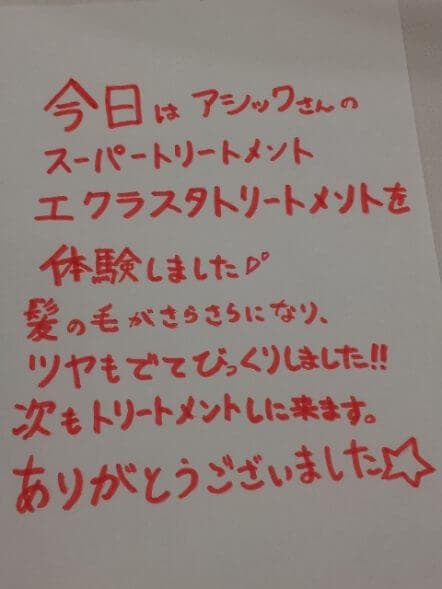 今日はアシックさんの
スーパートリートメント
エクラスタトリートメントを
体験しました♪
髪の毛がさらさらになり、
ツヤもでてびっくりしました!!
次もトリートメントしに来ます。
ありがとうございました☆